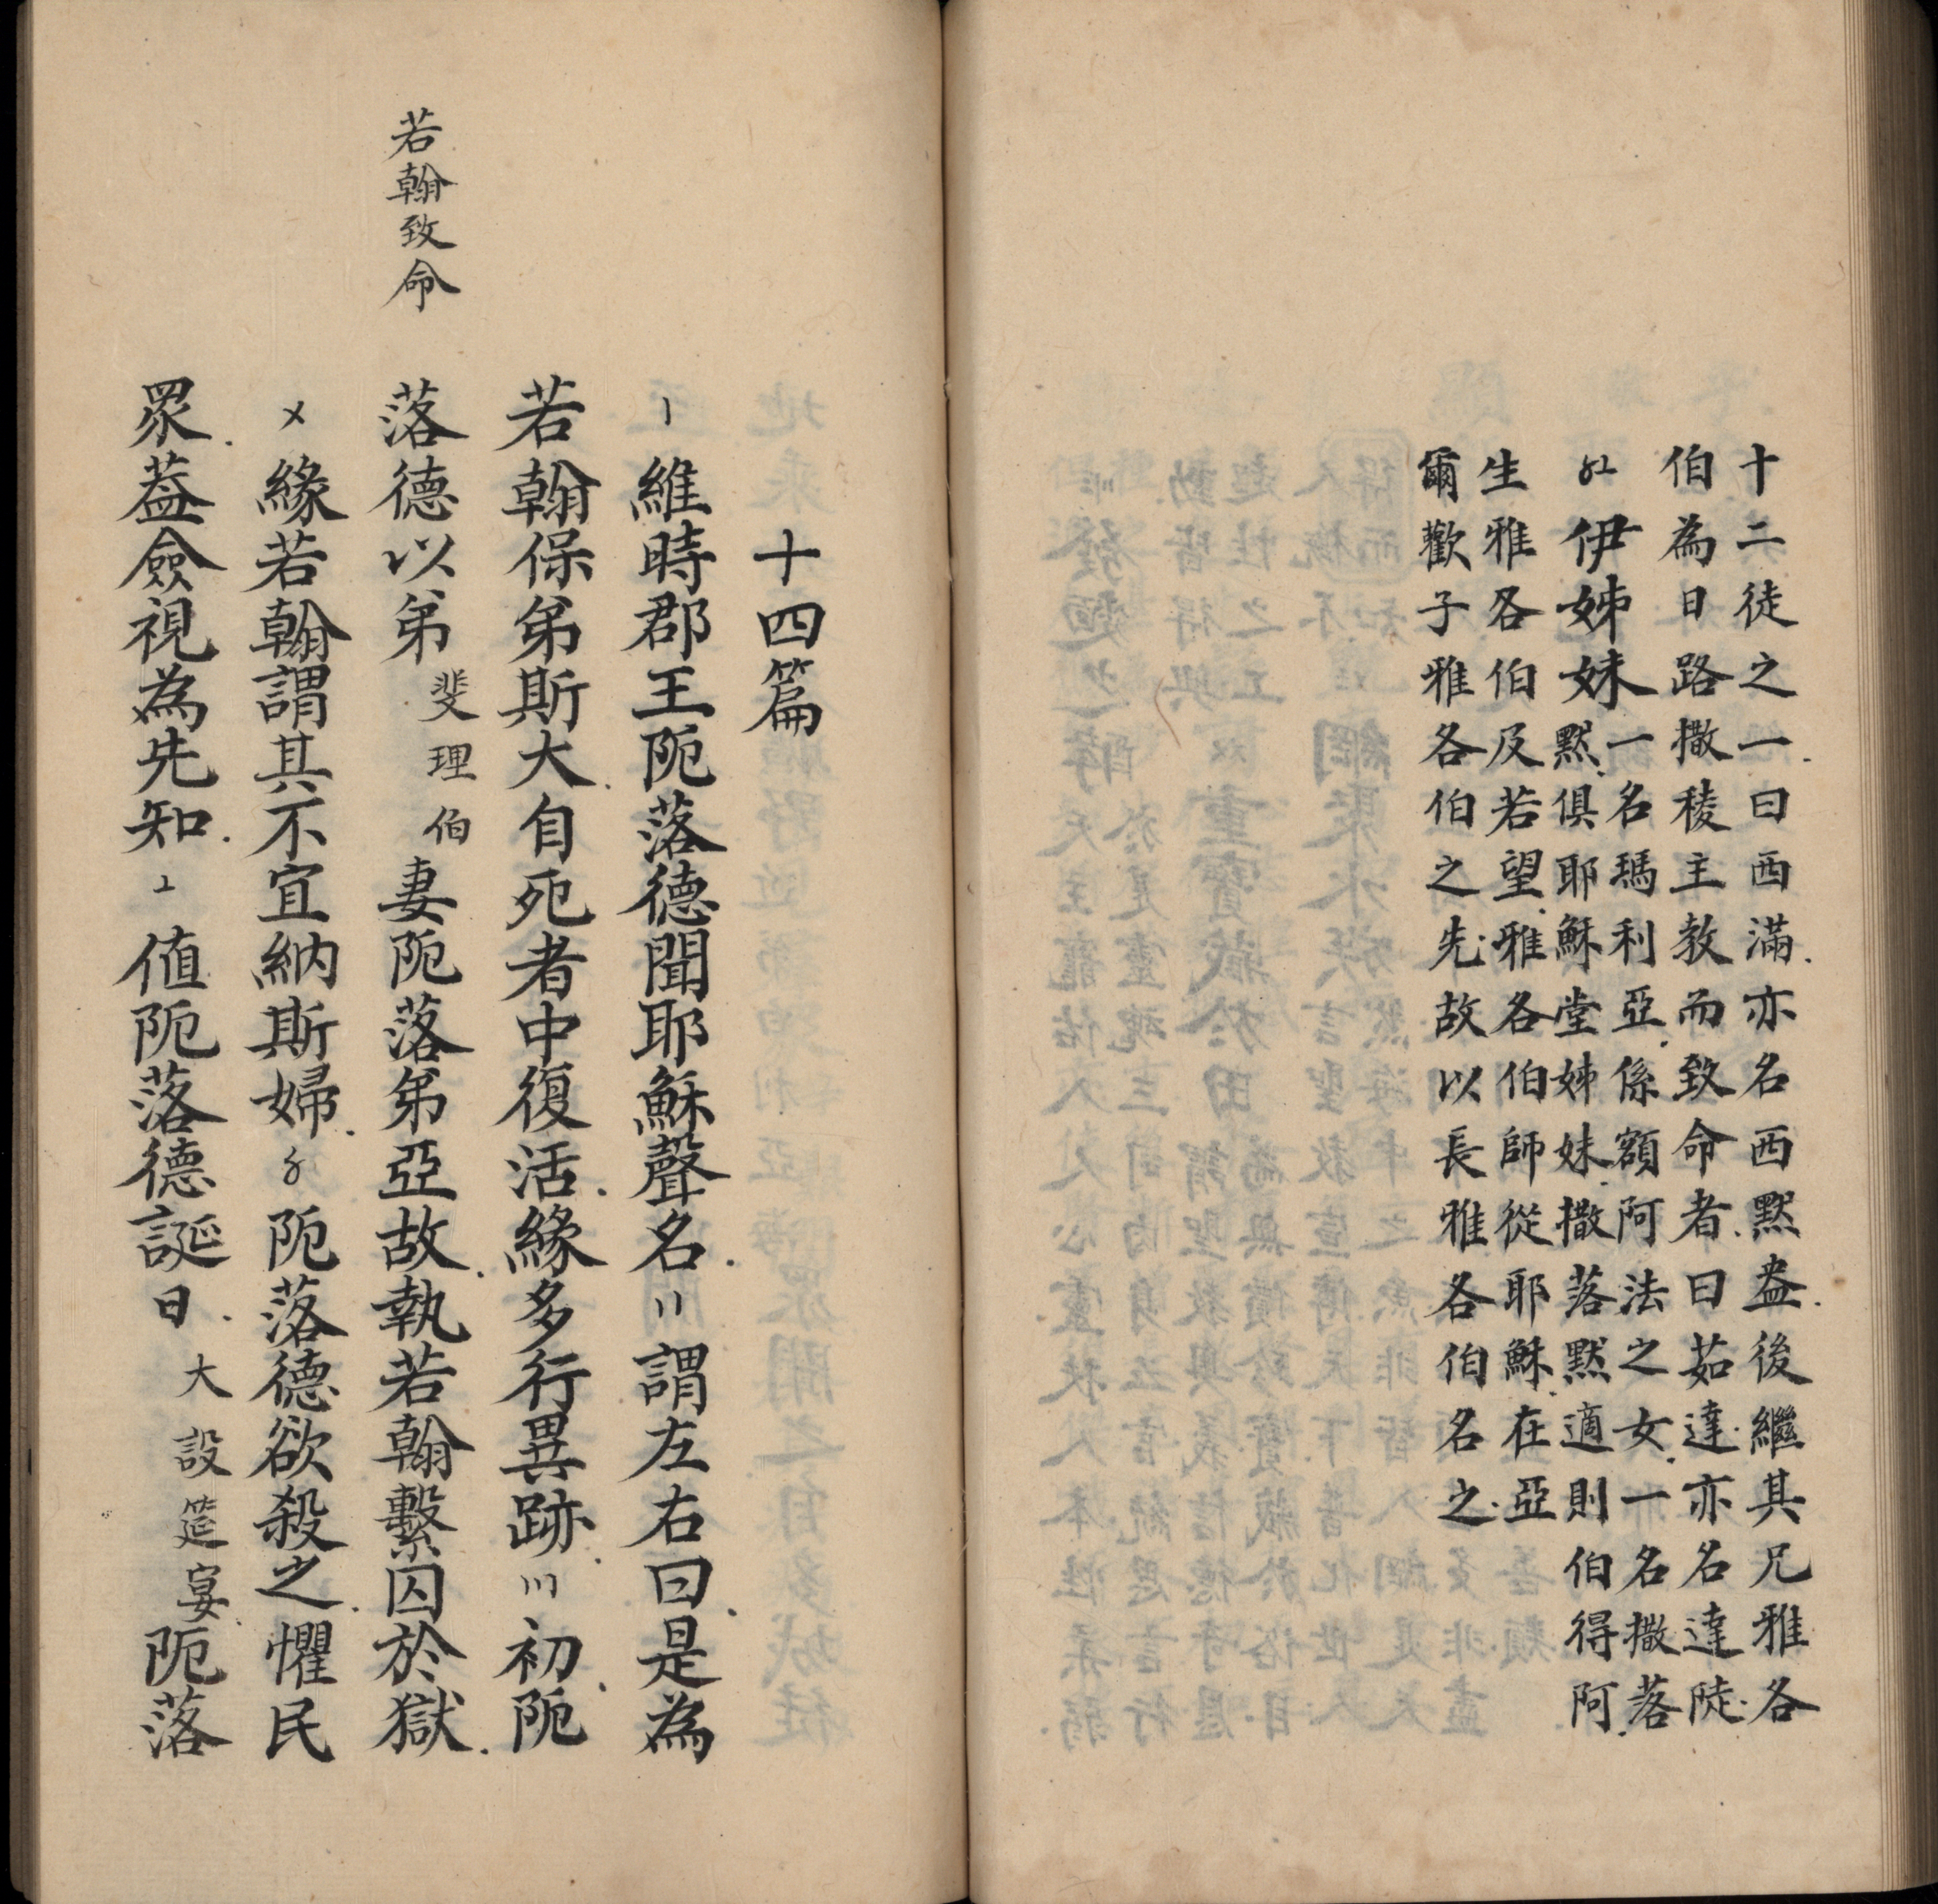 十二徒之一.曰西滿.亦名西黙盎.後繼其兄雅各
伯為日路撒稜主教而致命者.曰茹達.亦名達陡.
〥〦伊姊妹
一名瑪利亞.係額阿法之女.一名撒落
黙.俱耶穌堂姊妹.撒落黙適則伯得阿.
生雅各伯及若望.雅各伯師從耶穌.在亞
爾歡子雅各伯之先.故以長雅各伯名之.
十四篇
〡維時郡王阨落德聞耶穌聲名.〢謂左右曰.是為
若翰保弟斯大.自死者中復活.緣多行異跡.〣初.阨
若翰致命
落德以弟斐理伯妻阨落弟亞故.執若翰繫囚於獄.
〤緣若翰謂其不宜納斯婦.〥阨落德欲殺之.懼民
眾.葢僉視為先知.〦值阨落德誕日.大設筵宴.阨落